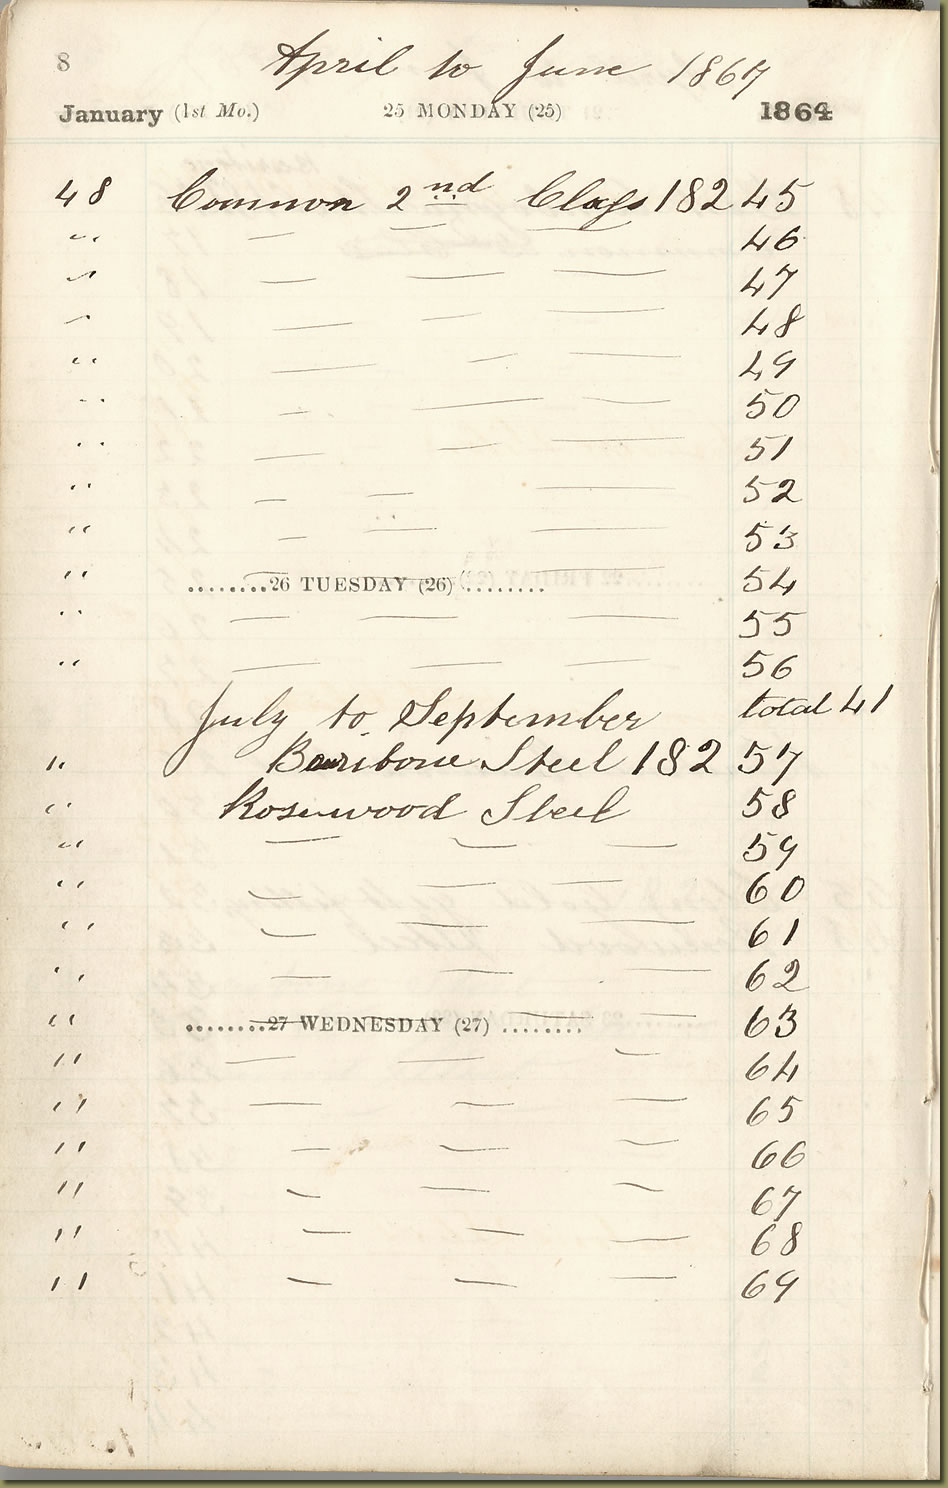 8 April to June 1867
January (1st Mo.) 25 MONDAY (25) 1864
48 Common 2nd Class 182 45
" — — — 46
" — — — 47
" — — — 48
" — — — 49
" — — — 50
" — — — 51
" — — — 52
" — — — 53
" — — — 54
........26 TUESDAY (26)........
" — — — 55
" — — — 56
total 41
July to September
" Baribone Steel 182 57
" Rosewood Steel 58
" — — — 59
" — — — 60
" — — — 61
" — — — 62
" — — — 63
........27 WEDNESDAY (27)........
" — — — 64
" — — — 65
" — — — 66
" — — — 67
" — — — 68
" — — — 69